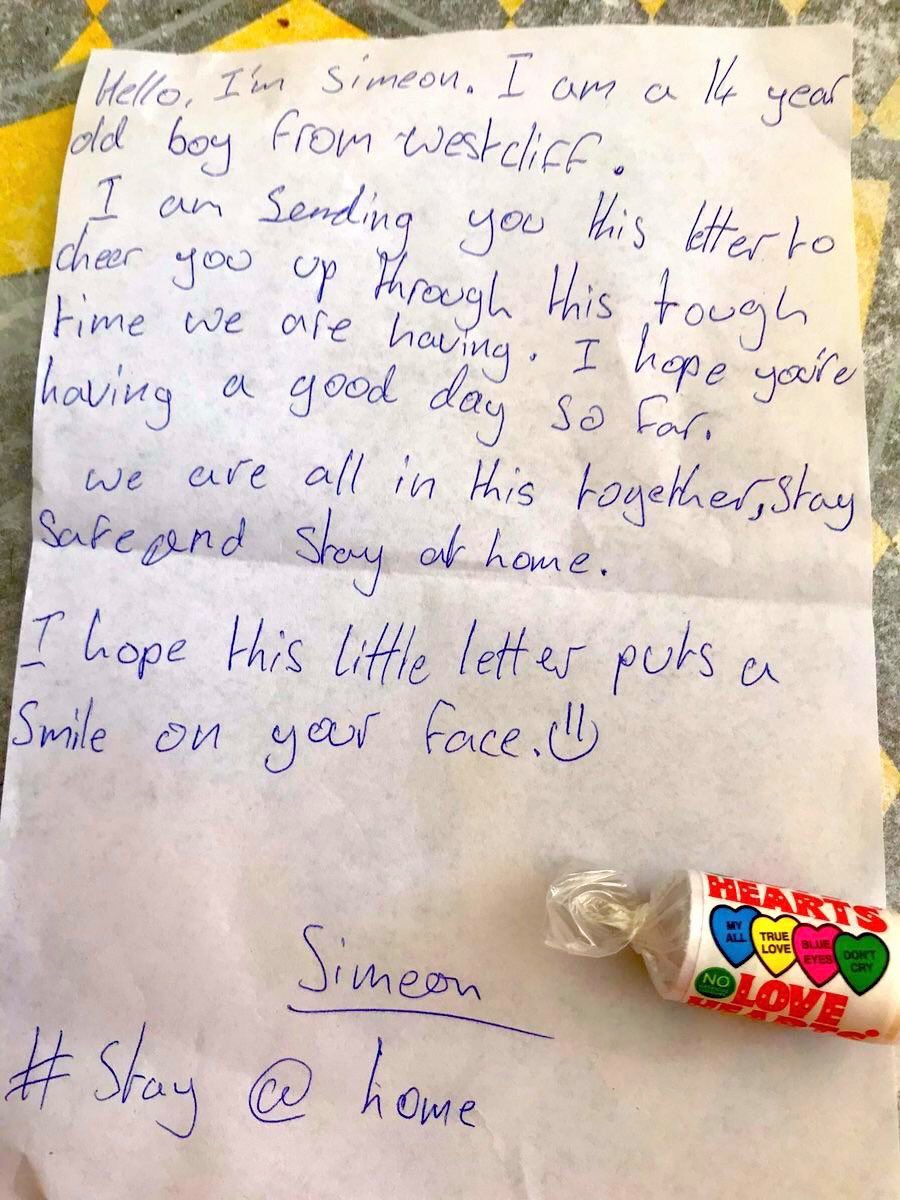 Hello, I'm Simeon. I am a 14 year
old boy from westcliff.
I am sending you this letter to
cheer you up through this tough
time we are having. I hope you're
having a good day so far.
we are all in this together, stay
safe and stay at home.
I hope this little letter puts a
smile on your face.
Simeon
# Stay @ home
HEARTS
MY ALL
TRUE LOVE
BLUE EYES
DON'T CRY
NO
LOVE
HEARTS